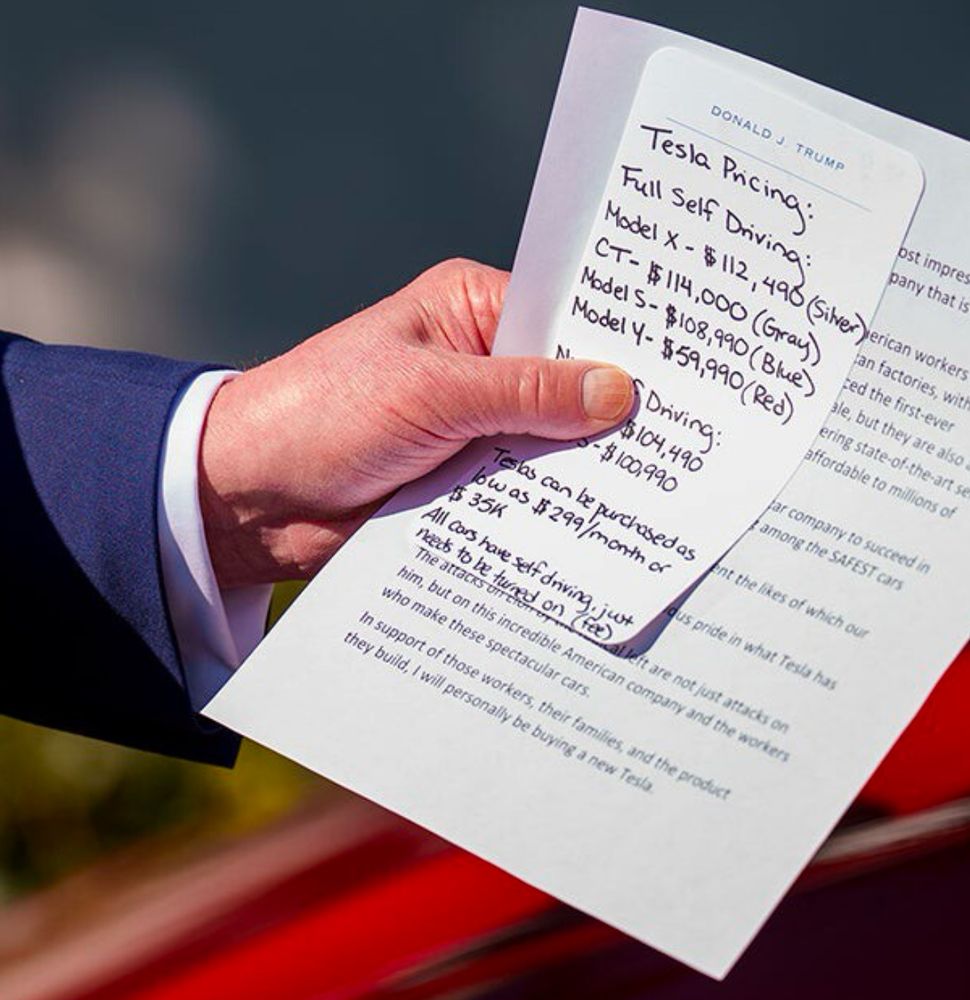 DONALD J. TRUMP
Tesla Pricing:
Full Self Driving:
Model X - $112,490 (Silver)
CT - $114,000 (Gray)
Model S - $108,990 (Blue)
Model Y - $59,990 (Red)
Driving:
$104,490
S - $100,990
Teslas can be purchased as
low as $299/month or
$35K
All cars have self driving, just
needs to be turned on (fee)
ost impres
pany that is
erican workers
an factories, with
ced the first-ever
ale, but they are also
ering state-of-the-art se
affordable to millions of
ar company to succeed in
among the SAFEST cars
ent the likes of which our
us pride in what Tesla has
The attacks on left are not just attacks on
him, but on this incredible American company and the workers
who make these spectacular cars.
In support of those workers, their families, and the product
they build, I will personally be buying a new Tesla.